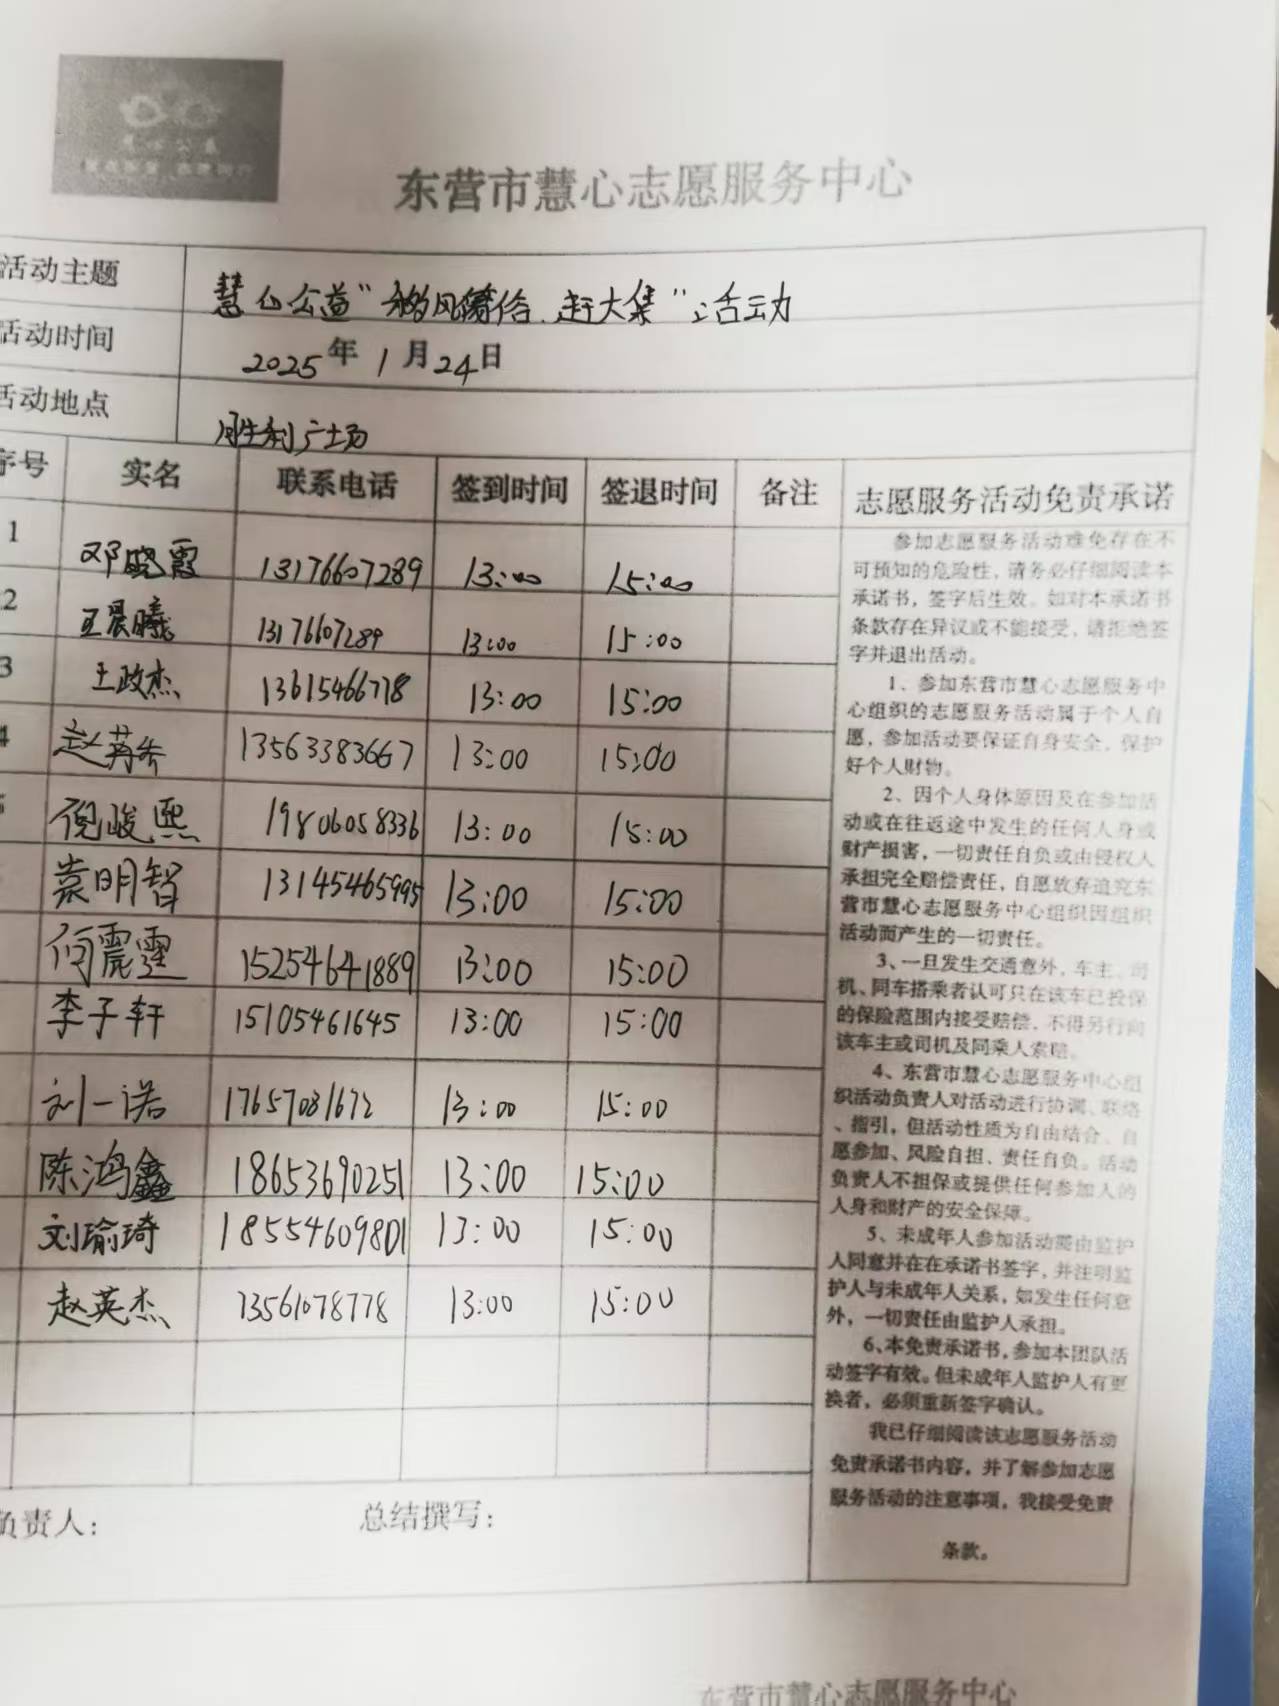 东营市慧心志愿服务中心
活动主题 慧心公益“移风易俗、赶大集”活动
活动时间 2025年1月24日
活动地点 胜利广场
序号 实名 联系电话 签到时间 签退时间 备注 志愿服务活动免责承诺
1 邓晓霞 13176607289 13:00 15:00
2 王晨曦 13176607289 13:00 15:00
3 王政杰 13615466778 13:00 15:00
4 赵苒乔 13563383667 13:00 15:00
倪峻熙 19806058336 13:00 15:00
袁明智 13145465995 13:00 15:00
何震霆 15254641889 13:00 15:00
李子轩 15105461645 13:00 15:00
刘一诺 17657081672 13:00 15:00
陈鸿鑫 18653690251 13:00 15:00
刘瑜琦 18554609801 13:00 15:00
赵英杰 13561078778 13:00 15:00
参加志愿服务活动难免存在不
可预知的危险性，请务必仔细阅读本
承诺书，签字后生效。如对本承诺书
条款存在异议或不能接受，请拒绝签
字并退出活动。
1、参加东营市慧心志愿服务中
心组织的志愿服务活动属于个人自
愿，参加活动要保证自身安全，保护
好个人财物。
2、因个人身体原因及在参加活
动或在往返途中发生的任何人身或
财产损害，一切责任自负或由侵权人
承担完全赔偿责任，自愿放弃追究东
营市慧心志愿服务中心组织因组织
活动而产生的一切责任。
3、一旦发生交通意外，车主、司
机、同车搭乘者认可只在该车已投保
的保险范围内接受赔偿，不得另行向
该车主或司机及同乘人索赔。
4、东营市慧心志愿服务中心组
织活动负责人对活动进行协调、联络
、指引，但活动性质为自由结合、自
愿参加、风险自担、责任自负。活动
负责人不担保或提供任何参加人的
人身和财产的安全保障。
5、未成年人参加活动需由监护
人同意并在在承诺书签字，并注明监
护人与未成年人关系，如发生任何意
外，一切责任由监护人承担。
6、本免责承诺书，参加本团队活
动签字有效。但未成年人监护人有更
换者，必须重新签字确认。
我已仔细阅读该志愿服务活动
免责承诺书内容，并了解参加志愿
服务活动的注意事项，我接受免责
条款。
负责人： 总结撰写：
东营市慧心志愿服务中心